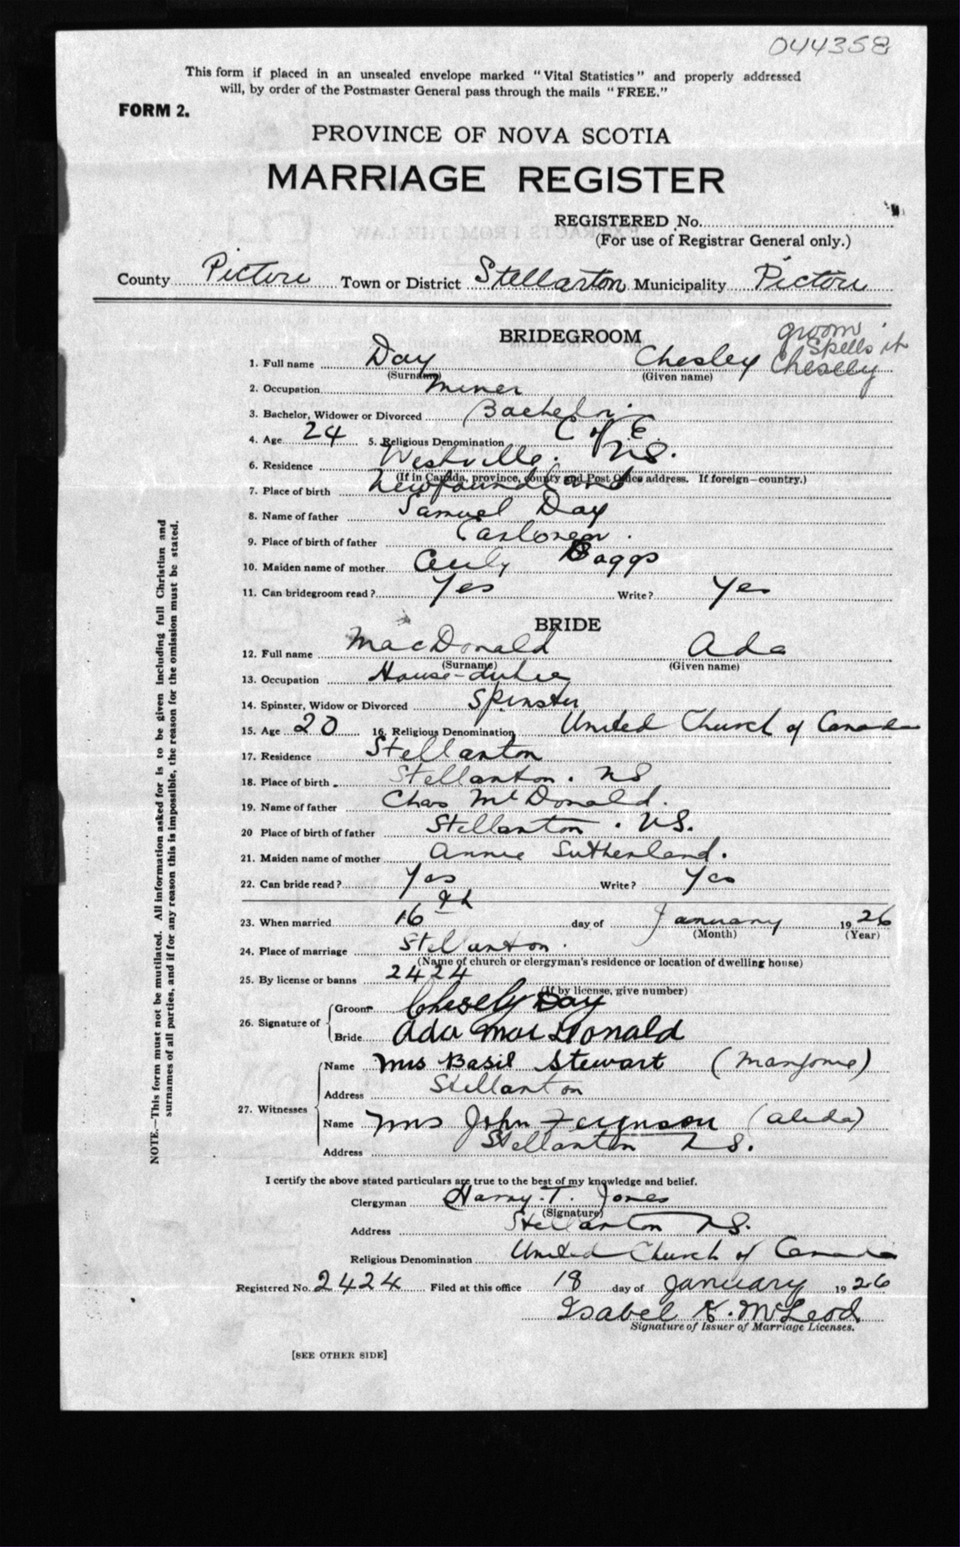 044358
This form if placed in an unsealed envelope marked "Vital Statistics" and properly addressed
will, by order of the Postmaster General pass through the mails "FREE."
FORM 2.
PROVINCE OF NOVA SCOTIA
MARRIAGE REGISTER
REGISTERED No.
(For use of Registrar General only.)
County Pictou Town or District Stellarton Municipality Pictou
BRIDEGROOM
groom spells it Cheselly
1. Full name Day Chesley
(Surname) (Given name)
2. Occupation miner
3. Bachelor, Widower or Divorced Bachelor
4. Age 24 5. Religious Denomination C of E
6. Residence Westville. NS.
(If in Canada, province, county and Post Office address. If foreign—country.)
7. Place of birth Newfoundland
8. Name of father Samuel Day
9. Place of birth of father
10. Maiden name of mother Baggs
11. Can bridegroom read? Yes Write? Yes
BRIDE
12. Full name MacDonald Ada
(Surname) (Given name)
13. Occupation House-duties
14. Spinster, Widow or Divorced Spinster
15. Age 20 16. Religious Denomination United Church of Canada
17. Residence Stellarton
18. Place of birth Stellarton. NS
19. Name of father Chas McDonald.
20 Place of birth of father Stellarton. NS.
21. Maiden name of mother Annie Sutherland.
22. Can bride read? Yes Write? Yes
23. When married 16th day of January 1926
(Month) (Year)
24. Place of marriage Stellarton.
(Name of church or clergyman's residence or location of dwelling house)
25. By license or banns 2424
(If by license, give number)
26. Signature of Groom Chesely Day
Bride Ada MacDonald
27. Witnesses Name Mrs Basil Stewart (Marjorie)
Address Stellarton
Name Mrs John Ferguson (Aleda)
Address Stellarton NS.
I certify the above stated particulars are true to the best of my knowledge and belief.
Clergyman Harry T. Jones
(Signature)
Address Stellarton NS.
Religious Denomination United Church of Canada
Registered No. 2424 Filed at this office 18 day of January 1926
Isabel K. McLeod
Signature of Issuer of Marriage Licenses.
[SEE OTHER SIDE]
NOTE.—This form must not be mutilated. All information asked for is to be given including full Christian and
surnames of all parties, and if for any reason this is impossible, the reason for the omission must be stated.